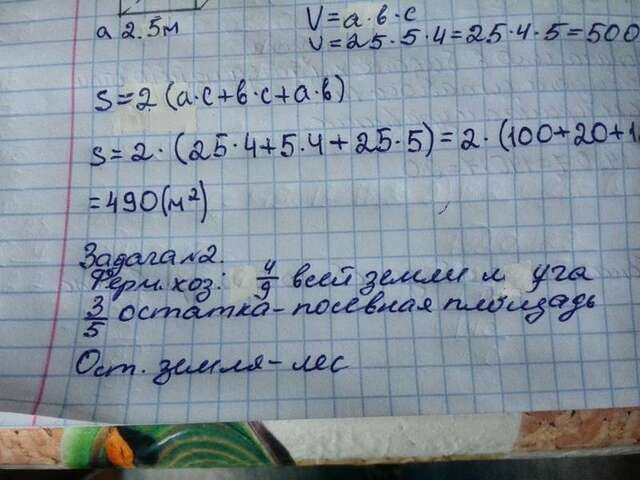 a 25м
V=a·в·с
V=25·5·4=25·4·5=500
S=2(a·c+в·c+a·в)
S=2·(25·4+5·4+25·5)=2·(100+20+1
=490(м²)
Задача№2.
Ферм.хоз: 4/9 всей земли луга
3/5 остатка-посевная площадь
Ост. земля-лес